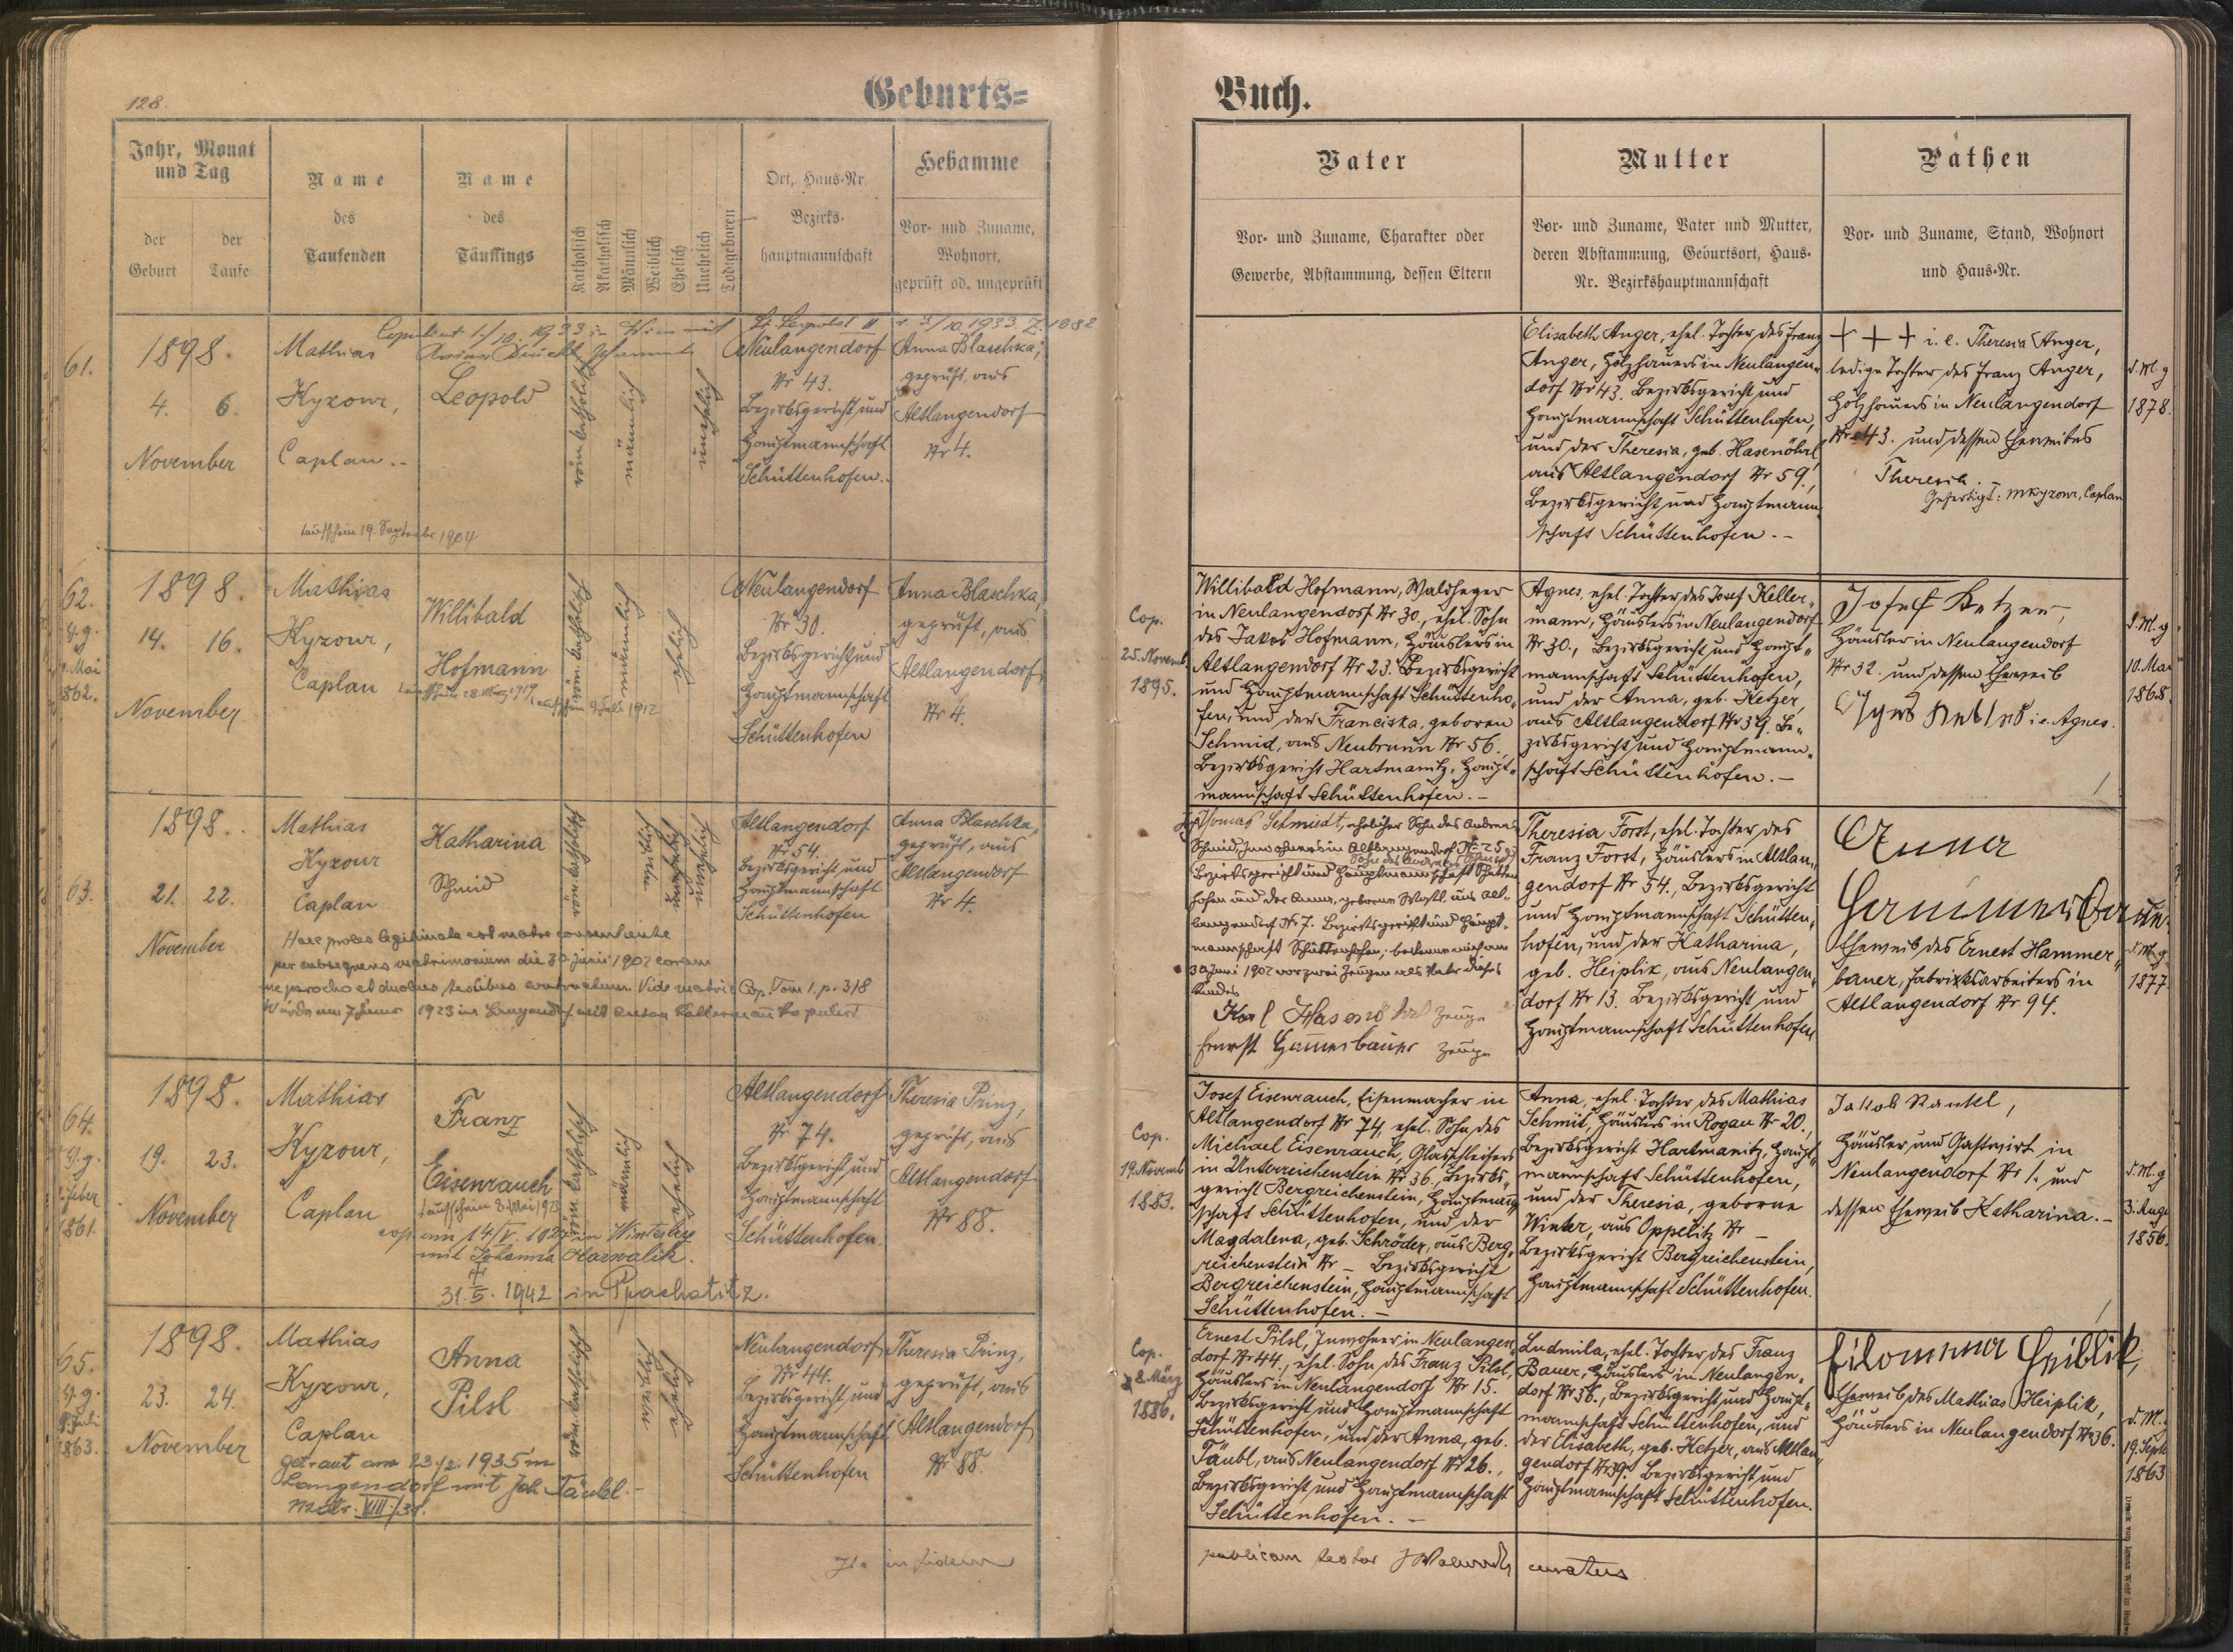 128.
Geburts=
Buch.
Jahr, Monat
und Tag
der
Geburt
der
Taufe
Name
des
Taufenden
Name
des
Täuflings
Katholisch
Akatholisch
Männlich
Weiblich
Ehelich
Unehelich
Todtgeboren
Ort, Haus-Nr.
Bezirks-
hauptmannschaft
Hebamme
Vor- und Zuname,
Wohnort,
geprüft od. ungeprüft
Vater
Vor- und Zuname, Charakter oder
Gewerbe, Abstammung, dessen Eltern
Mutter
Vor- und Zuname, Vater und Mutter,
deren Abstammung, Geburtsort, Haus-
Nr. Bezirkshauptmannschaft
Pathen
Vor- und Zuname, Stand, Wohnort
und Haus-Nr.
61.
1898.
4. 6.
November
Mathias
Kyzour,
Caplan.-
Copuliert 1./10. 1933 in Wien mit
St. Leopold II
Leopold
röm. katholisch
männlich
unehelich
Neulangendorf
Nr 43.
Bezirksgericht und
Hauptmannschaft
Schüttenhofen.
Anna Blaschka,
geprüft, aus
Altlangendorf
Nr 4.
Taufschein 19. September 1904
Elisabeth Anger, ehel. Tochter des Franz
Anger, Holzhauers in Neulangen-
dorf Nr 43. Bezirksgericht und
Hauptmannschaft Schüttenhofen,
und der Theresia, geb. Hasenöhrl
aus Altlangendorf Nr 59.,
Bezirksgericht und Hauptmann-
schaft Schüttenhofen.-
+ + + i. e. Theresia Anger,
ledige Tochter des Franz Anger,
Holzhauers in Neulangendorf
Nr 43. und dessen Eheweibes
Theresia.
Gefertigt: MKyzour, Caplan
d. M. g
1878.
62.
9. Mai
1862.
1898.
14. 16.
November
Mathias
Kyzour,
Caplan
Willibald
Hofmann
röm. katholisch
männlich
ehelich
Neulangendorf
Nr 30.
Bezirksgericht und
Hauptmannschaft
Schüttenhofen
Anna Blaschka,
geprüft, aus
Altlangendorf
Nr 4.
Cop.
25. Novemb.
1895.
Willibald Hofmann, Waldheger
in Neulangendorf Nr 30., ehel. Sohn
des Jakob Hofmann, Häuslers in
Altlangendorf Nr 23. Bezirksgericht
und Hauptmannschaft Schüttenho-
fen, und der Franciska, geboren
Schmid, aus Neubrunn Nr 56.
Bezirksgericht Hartmanitz, Haupt-
mannschaft Schüttenhofen.-
Agnes, ehel. Tochter des Josef Keller-
mann, Häuslers in Neulangendorf
Nr 30., Bezirksgericht und Haupt-
mannschaft Schüttenhofen,
und der Anna, geb. Ketzer,
aus Altlangendorf Nr 39. Be-
zirksgericht und Hauptmann-
schaft Schüttenhofen.-
Josef Ketzer,
Häusler in Neulangendorf
Nr 32. und dessen Eheweib
i. e. Agnes.
d. M. g
10. Mai
1868.
63.
1898.
21. 22.
November
Mathias
Kyzour
Caplan
Katharina
Schmid
röm. katholisch
weiblich
unehelich
Altlangendorf
Nr 54.
Bezirksgericht und
Hauptmannschaft
Schüttenhofen
Anna Blaschka,
geprüft, aus
Altlangendorf
Nr 4.
Haec proles legitimata est matre consentiente
per subsequens matrimonium die 30 Junii 1902 coram
me parocho et duobus testibus contractum. Vide matric Cop. Tom 1. p. 318
Thomas Schmidt, ehelicher Sohn des Andreas
Schmid Inwohners in Altlangendorf Nr 25
Bezirksgericht und Hauptmannschaft Schütten-
hofen und der Anna, geborene aus Alt-
langendorf Nr 7. Bezirksgericht und Haupt-
mannschaft Schüttenhofen, bekenne mich am
30 Juni 1902 vor zwei Zeugen als Vater dieses
Kindes
Karl Hasenöhrl Zeuge
Ernest Hammerbauer Zeuge
Theresia Forst, ehel. Tochter des
Franz Forst, Häuslers in Altlan-
gendorf Nr 54., Bezirksgericht
und Hauptmannschaft Schütten-
hofen, und der Katharina,
geb. Heiplik, aus Neulangen-
dorf Nr 13. Bezirksgericht und
Hauptmannschaft Schüttenhofen
Anna
Hammerbauer
Eheweib des Ernest Hammer-
bauer, Fabriksarbeiters in
Altlangendorf Nr 94.
d. M. g
1877
64.
1861.
1898.
19. 23.
November
Mathias
Kyzour,
Caplan
Franz
Eisenrauch
röm. katholisch
männlich
ehelich
Altlangendorf
Nr 74.
Bezirksgericht und
Hauptmannschaft
Schüttenhofen.
Theresia Prinz,
geprüft, aus
Altlangendorf
Nr 88.
mit Johanna
+
31. 5. 1942 in Prachatitz.
Cop.
19. Novemb.
1883.
Josef Eisenrauch, Eisenmacher in
Altlangendorf Nr 74, ehel. Sohn des
Michael Eisenrauch, Glasschleifers
in Unterreichenstein Nr 36., Bezirks-
gericht Bergreichenstein, Hauptmann-
schaft Schüttenhofen, und der
Magdalena, geb. Schröder, aus Berg-
reichenstein Nr – Bezirksgericht
Bergreichenstein, Hauptmannschaft
Schüttenhofen.-
Anna, ehel. Tochter des Mathias
Schmit, Häuslers in Rogau Nr 20.,
Bezirksgericht Hartmanitz, Haupt-
mannschaft Schüttenhofen,
und der Theresia, geborne
Winter, aus Oppelitz Nr –
Bezirksgericht Bergreichenstein,
Hauptmannschaft Schüttenhofen.
Jakob
Häusler und Gastwirt in
Neulangendorf Nr 1. und
dessen Eheweib Katharina.-
d. M. g
3. Aug
1856.
65.
1863.
1898.
23. 24.
November
Mathias
Kyzour,
Caplan
Anna
Pilsl
röm. katholisch
weiblich
ehelich
Neulangendorf
Nr 44.
Bezirksgericht und
Hauptmannschaft
Schüttenhofen
Theresia Prinz,
geprüft, aus
Altlangendorf
Nr 88.
getraut am 23./2. 1935 in
Langendorf mit Joh. Täubl.-
Cop.
8. März
1886.
Ernest Pilsl, Inwohner in Neulangen-
dorf Nr 44., ehel. Sohn des Franz Pilsl,
Häuslers in Neulangendorf Nr 15.
Bezirksgericht und Hauptmannschaft
Schüttenhofen, und der Anna, geb.
Täubl, aus Neulangendorf Nr 26.,
Bezirksgericht und Hauptmannschaft
Schüttenhofen.-
Ludmila, ehel. Tochter des Franz
Bauer, Häuslers in Neulangen-
dorf Nr 36., Bezirksgericht und Haupt-
mannschaft Schüttenhofen, und
der Elisabeth, geb. Ketzer, aus Altlan-
gendorf Nr 39. Bezirksgericht und
Hauptmannschaft Schüttenhofen.
Filomena Heiblik,
Eheweib des Mathias Heiplik,
Häuslers in Neulangendorf Nr 36.
d. M.
19. Sept
1863
Ita in fidem
publicam testor curatus